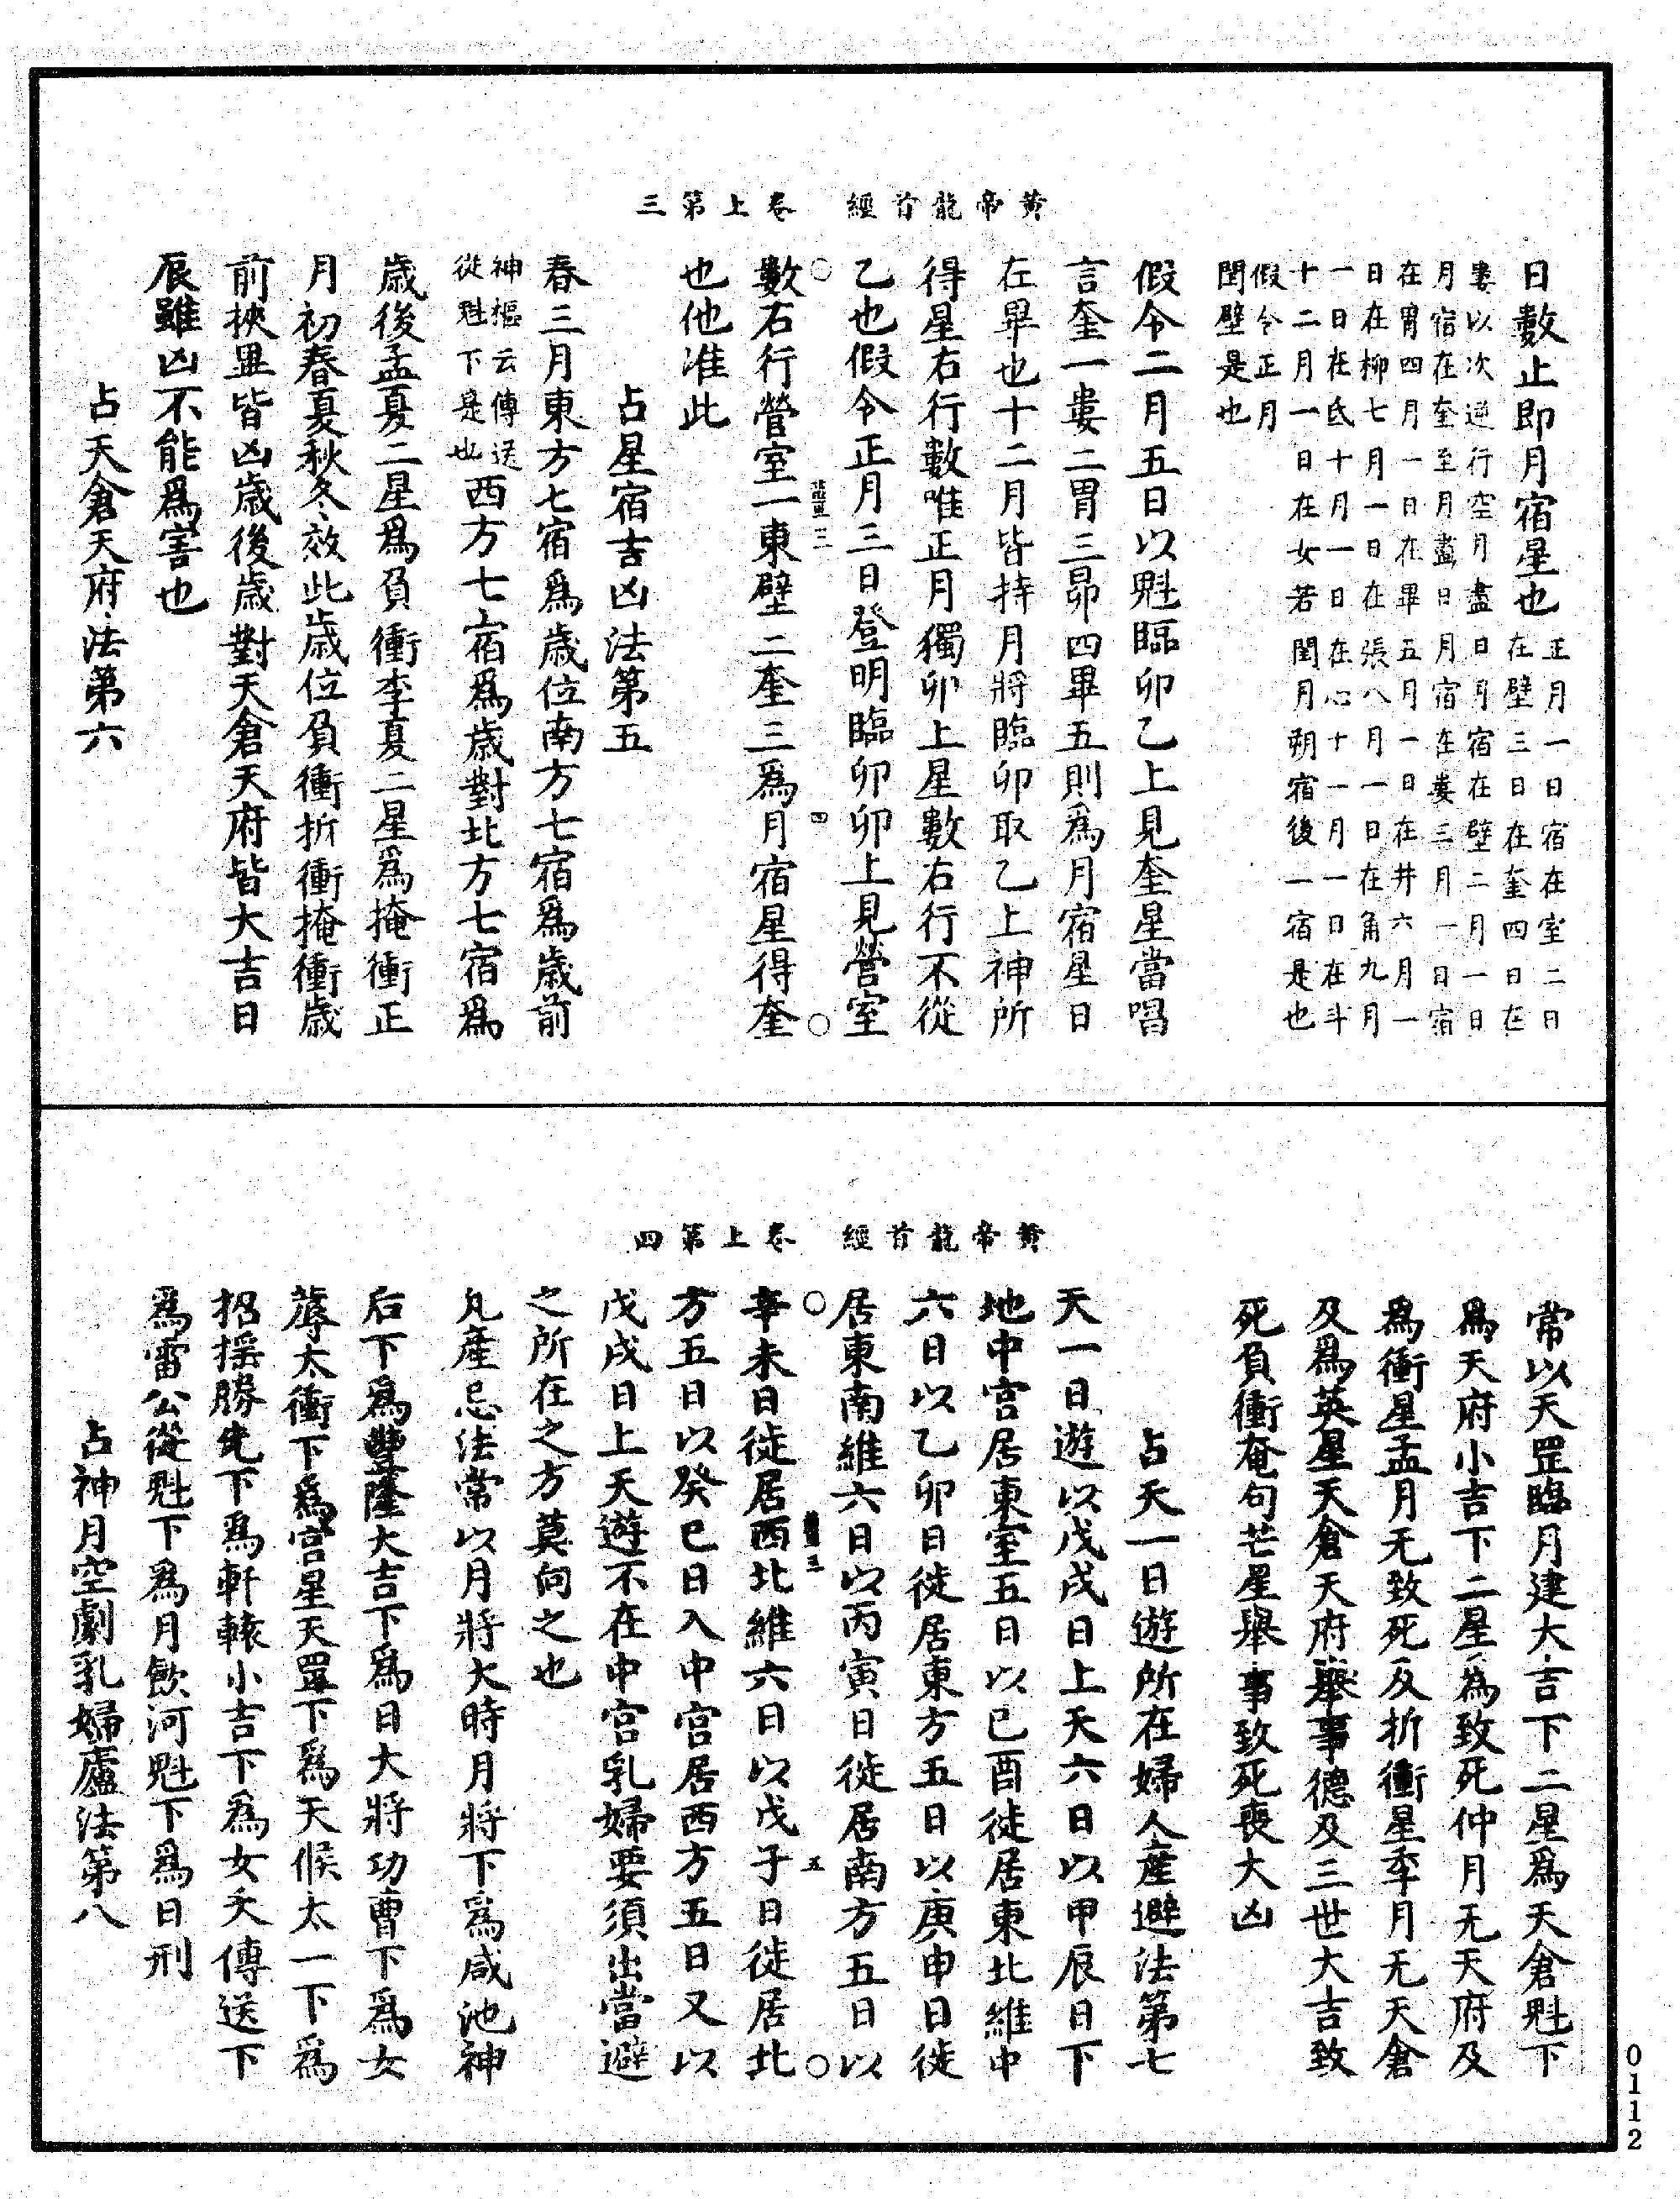 黄帝龍首經 卷上第三
日數止即月宿星也正月一日宿在室二日在壁三日在奎四日在
婁以次逆行空月盡日月宿在壁二月一日
月宿在奎至月盡日月宿在婁三月一日宿
在胃四月一日在畢五月一日在井六月一
日在柳七月一日在張八月一日在角九月
一日在氐十月一日在心十一月一日在斗
十二月一日在女若閏月朔宿後一宿是也
假令正月
閏壁是也
假令二月五日以魁臨卯乙上見奎星當唱
言奎一婁二胃三昴四畢五則為月宿星日
在畢也十二月皆持月將臨卯取乙上神所
得星右行數唯正月獨卯上星數右行不從
乙也假令正月三日登明臨卯卯上見營室
三 四
數右行營室一東壁二奎三為月宿星得奎
也他准此
占星宿吉凶法第五
春三月東方七宿為歲位南方七宿為歲前
神樞云傳送從魁下是也西方七宿為歲對北方七宿為
歲後孟夏二星為負衝季夏二星為掩衝正
月初春夏秋冬效此歲位負衝折衝掩衝歲
前挾畢皆凶歲後歲對天倉天府皆大吉日
辰雖凶不能為害也
占天倉天府法第六
黄帝龍首經 卷上第四
常以天罡臨月建大吉下二星為天倉魁下
為天府小吉下二星為致死仲月无天府及
為衝星孟月无致死及折衝星季月无天倉
及為英星天倉天府舉事德及三世大吉致
死負衝奄句芒星舉事致死喪大凶
占天一日遊所在婦人產避法第七
天一日遊以戊戌日上天六日以甲辰日下
地中宮居東室五日以己酉徙居東北維中
六日以乙卯日徙居東方五日以庚申日徙
居東南維六日以丙寅日徙居南方五日以
五
辛未日徙居西北維六日以戊子日徙居北
方五日以癸巳日入中宮居西方五日又以
戊戌日上天遊不在中宮乳婦要須出當避
之所在之方莫向之也
凡產忌法常以月將大時月將下為咸池神
后下為豐隆大吉下為日大將功曹下為女
薄太衝下為宮星天罡下為天候太一下為
招搖勝先下為軒轅小吉下為女夭傳送下
為雷公從魁下為月飲河魁下為日刑
占神月空劇乳婦廬法第八
0112